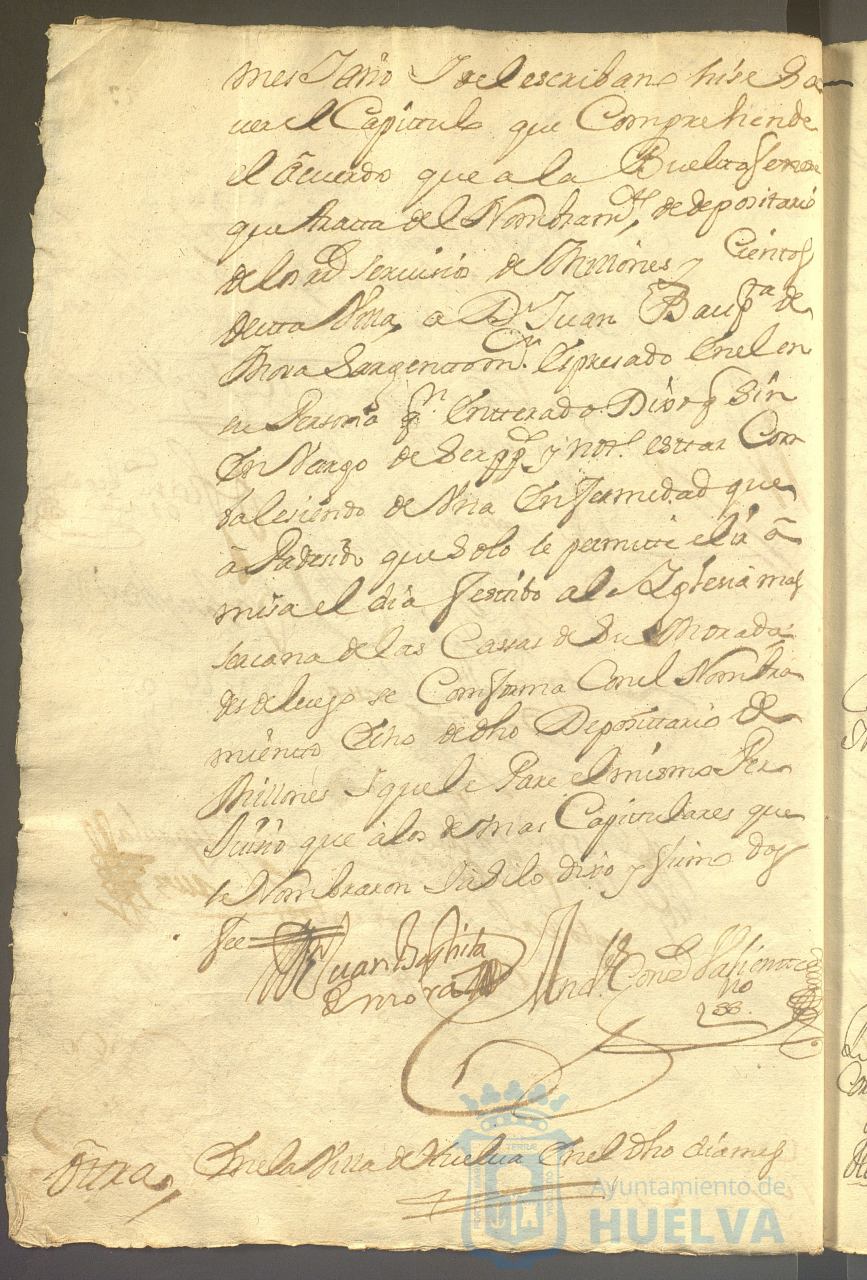 mes Jaño Yo el escribano hise Sa
uer el Capittulo que Comprehende
el acuerdo que a la Buelta se
que tratta del Nombramto, de depositario
de los rs seruisios de Millones y Cientos
de esta Villa, a Dn Juan Baupta de
Mora Sargentto mr. Espresado Enel en
su Persona qn Entterado Dixo q Sin
En Vargo de estar Com
balesiendo de Vna Enfermedad que
â Padesido que Solo le permitte el ir â
misa el dia festibo a la Yglesia mas
sercana de las Cassas de Su Morada:
des de luego se Comforma Conel Nombra
miento Echo de dho Deposittario de
Millones Y que le Pare el mismo Per
Juisio que â los demas Capittulares que
le Nombraron Y asi lo dixo y firmo doy
fee
Juan Baptista
de mora
Valiente
sno
Ottra, En la Villa de Huelua En el dho dia mes
Ayuntamiento de
HUELVA